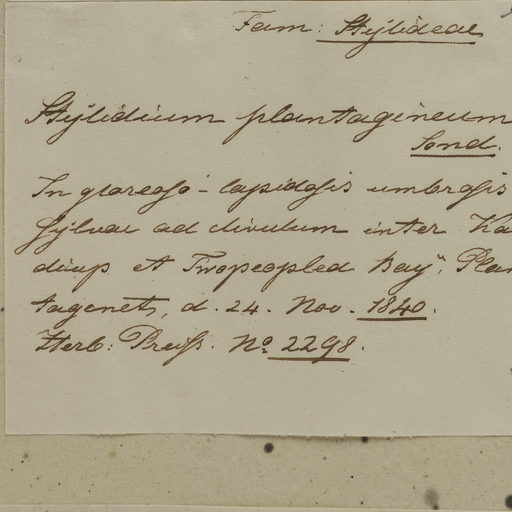 Fam: Stÿlideae
Stÿlidium plantagineum
Sond.
In glareoso-lapidosis umbrosis
sylvae ad clivulum inter Ka
diup et Twopeopled Bay", Plan
tagenet, d. 24. Nov. 1840.
Herb: Preiss. No. 2298.